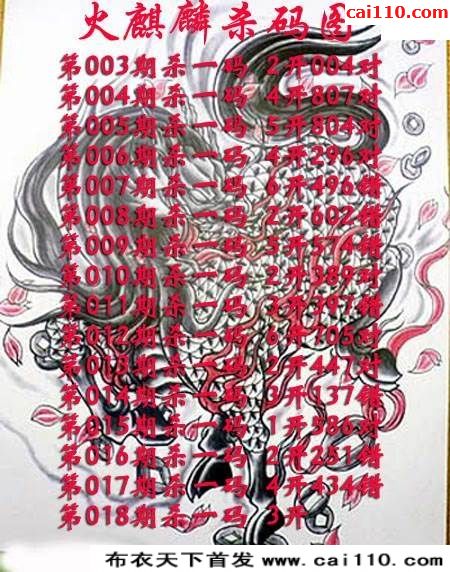 www.cai110.com
火麒麟杀码图
第003期杀一码 2开004对
第004期杀一码 4开807对
第005期杀一码 5开804对
第006期杀一码 4开296对
第007期杀一码 6开496错
第008期杀一码 2开602错
第009期杀一码 5开574错
第010期杀一码 2开389对
第011期杀一码 3开397错
第012期杀一码 6开705对
第013期杀一码 2开447对
第014期杀一码 3开137错
第015期杀一码 1开586对
第016期杀一码 2开251错
第017期杀一码 4开434错
第018期杀一码 3开
布衣天下首发 www.cai110.com